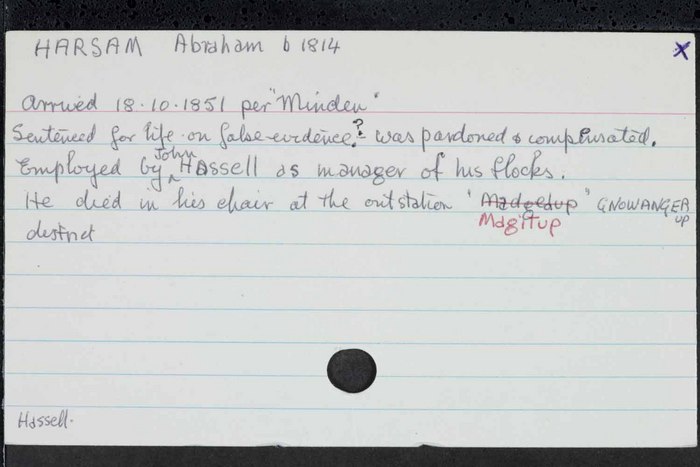 HARSAM Abraham b 1814 x
Arrived 18.10.1851 per "Minden"
Sentenced for life on false evidence.? was pardoned & compensated.
Employed by John Hassell as manager of his flocks.
He died in his chair at the outstation "Madgedup" GNOWANGERUP
Magitup
district
Hassell.